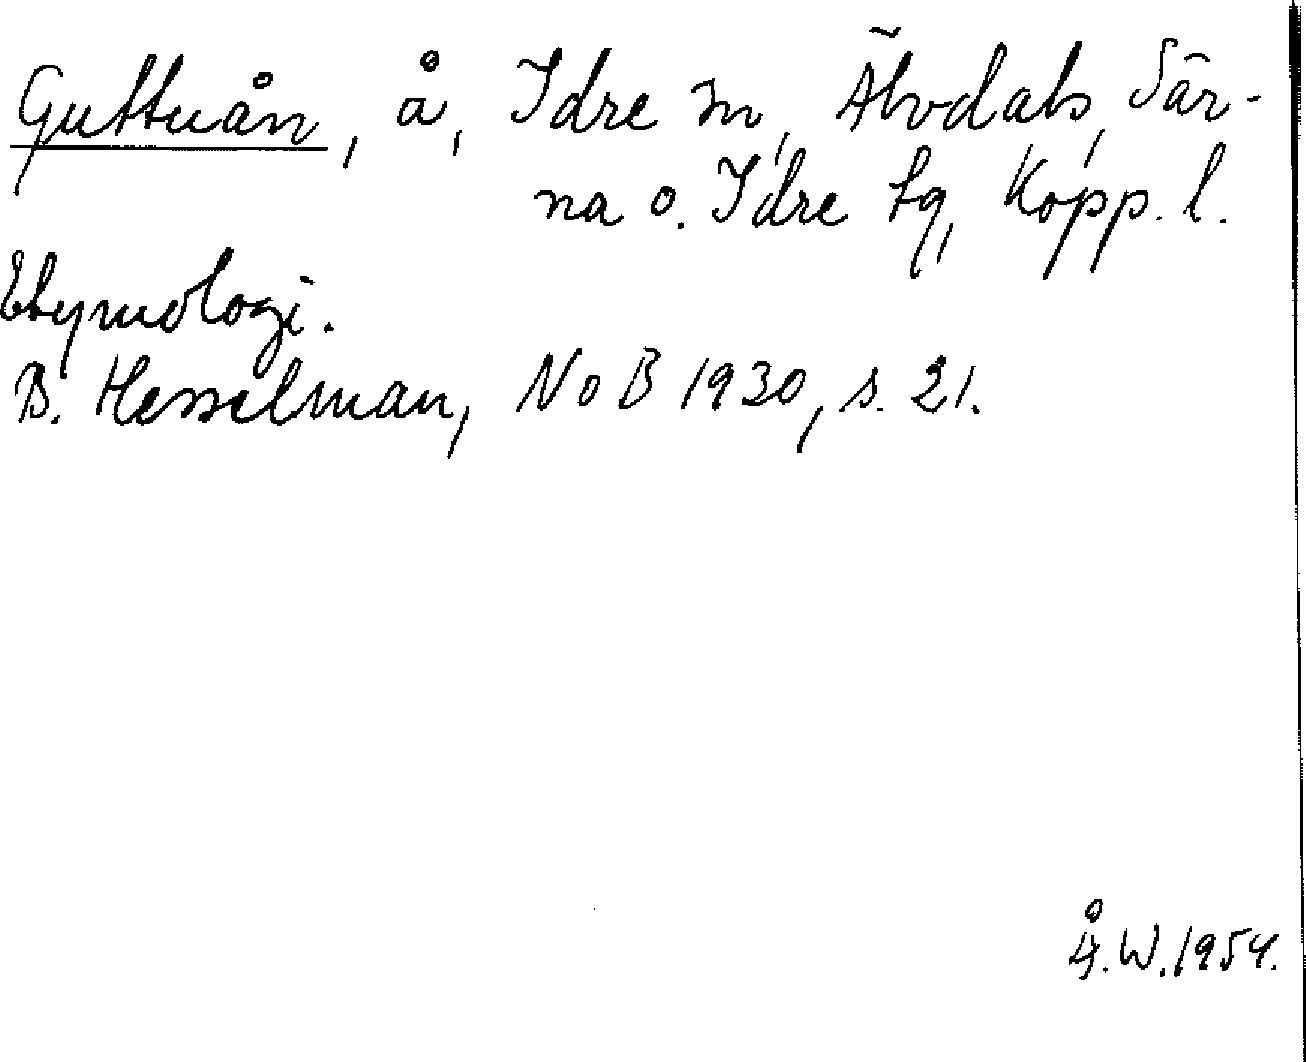 Guttuån, å, Idre sn, Älvdals, Sär-
na o. Idre tg, Kopp. l.
Etymologi.
B. Hesselman, NoB 1930, s. 21.
Å.W.1954.